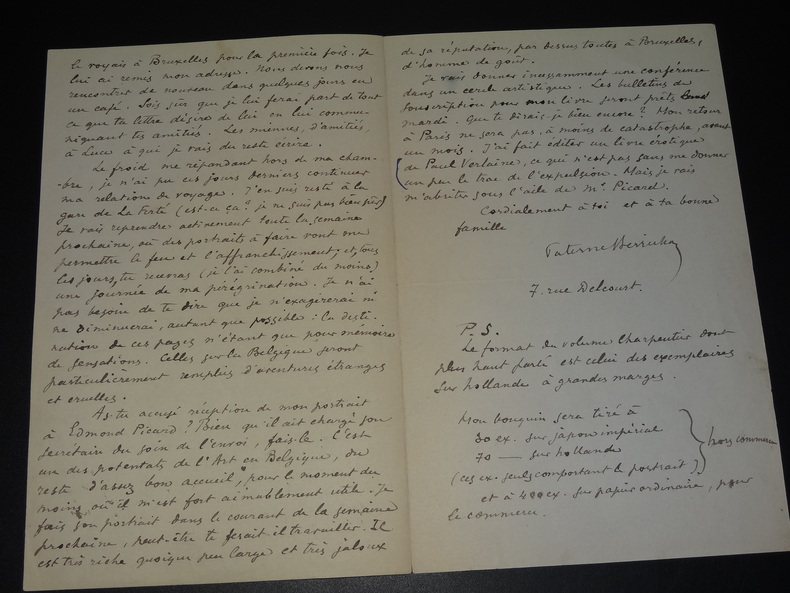 le voyais à Bruxelles pour la première fois. Je
lui ai remis mon adresse. Nous devons nous
rencontrer de nouveau dans quelques jours en
un café. Sois sûr que je lui ferai part de tout
ce que ta lettre désire de lui en lui commu-
niquant tes amitiés. Les miennes, d'amitiés,
à Luce à qui je vais du reste écrire.
Le froid me répandant hors de ma cham-
bre, je n'ai pu ces jours derniers continuer
ma relation de voyage. J'en suis resté à la
gare de La Ferté (est-ce ça? je ne suis pas bien sûr)
Je vais reprendre activement toute la semaine
prochaine, où des portraits à faire vont me
permettre le feu et l'affranchissement; et, tous
les jours, tu recevras (je l'ai combiné du moins)
une journée de ma pérégrination. Je n'ai
pas besoin de te dire que je n'exagérerai ni
ne diminuerai, autant que possible : la desti-
nation de ces pages n'étant que pour mémoire
de sensations. Celles sur la Belgique seront
particulièrement remplies d'aventures étranges
et cruelles.
As-tu accusé réception de mon portrait
à Edmond Picard? Bien qu'il ait chargé son
secrétaire du soin de l'envoi, fais-le. C'est
un des potentats de l'Art en Belgique, du
reste d'assez bon accueil, pour le moment du
moins où il m'est fort aimablement utile. Je
fais son portrait dans le courant de la semaine
prochaine, peut-être te ferait-il travailler. Il
est très riche quoique peu large et très jaloux
de sa réputation, par dessus toutes à Bruxelles,
d'homme de goût.
Je vais donner incessamment une conférence
dans un cercle artistique. Les bulletins de
souscription pour mon livre seront prêts
mardi. Que te dirai-je bien encore? Mon retour
à Paris ne sera pas, à moins de catastrophe, avant
un mois. J'ai fait éditer un livre érotique
de Paul Verlaine, ce qui n'est pas sans me donner
un peu le trac de l'expulsion. Mais je vais
m'abriter sous l'aile de Mr. Picard.
Cordialement à toi et à ta bonne
famille
Paterne Berrichon
7, rue Delcourt.
P.S.
Le format du volume Charpentier dont
plus haut parlé est celui des exemplaires
sur hollande à grandes marges.
Mon bouquin sera tiré à
30 ex. sur japon impérial
70 — sur hollande
(ces ex. seuls comportant le portrait)
hors commerce
et à 400 ex. sur papier ordinaire, pour
le commerce.